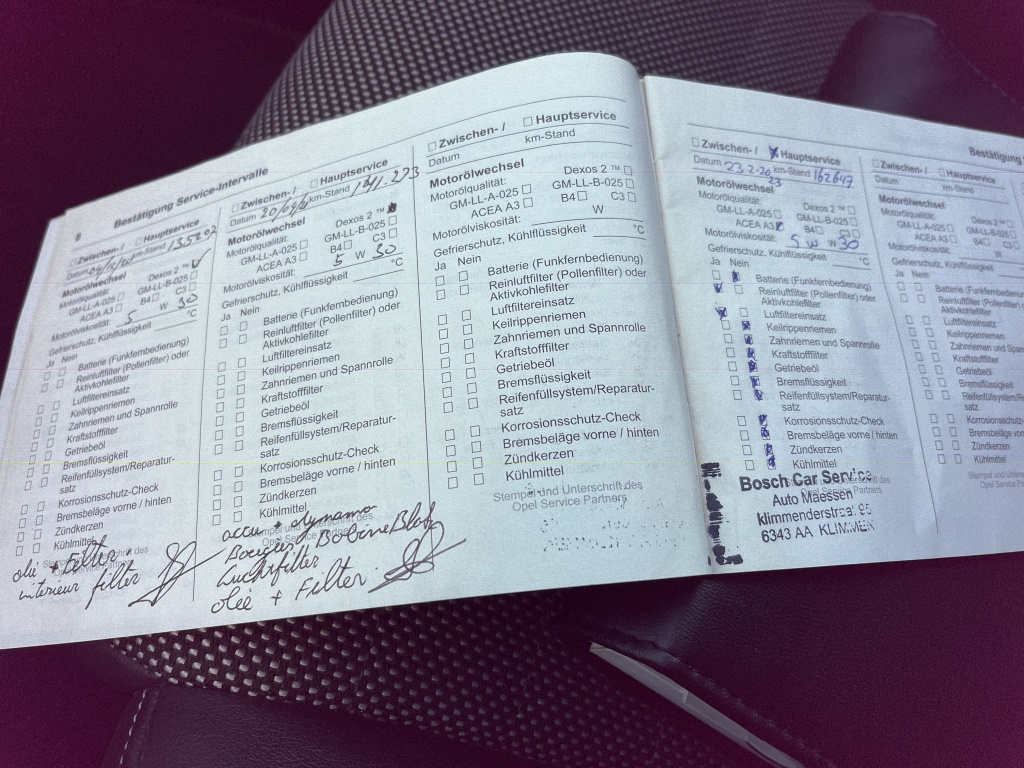 8
Bestätigung Service-Intervalle
Zwischen- / Hauptservice
Datum km-Stand
Motorölwechsel
Motorölqualität: Dexos 2 ™
GM-LL-A-025 GM-LL-B-025
ACEA A3 B4 C3
Motorölviskosität: 5 W 30
Gefrierschutz, Kühlflüssigkeit °C
Ja Nein
Batterie (Funkfernbedienung)
Reinluftfilter (Pollenfilter) oder
Aktivkohlefilter
Luftfiltereinsatz
Keilrippenriemen
Zahnriemen und Spannrolle
Kraftstofffilter
Getriebeöl
Bremsflüssigkeit
Reifenfüllsystem/Reparatur-
satz
Korrosionsschutz-Check
Bremsbeläge vorne / hinten
Zündkerzen
Kühlmittel
olie + Filter
interieur filter
Zwischen- / Hauptservice
Datum km-Stand 141.273
Motorölwechsel
Motorölqualität: Dexos 2 ™
GM-LL-A-025 GM-LL-B-025
ACEA A3 B4 C3
Motorölviskosität: 5 W 30
Gefrierschutz, Kühlflüssigkeit °C
Ja Nein
Batterie (Funkfernbedienung)
Reinluftfilter (Pollenfilter) oder
Aktivkohlefilter
Luftfiltereinsatz
Keilrippenriemen
Zahnriemen und Spannrolle
Kraftstofffilter
Getriebeöl
Bremsflüssigkeit
Reifenfüllsystem/Reparatur-
satz
Korrosionsschutz-Check
Bremsbeläge vorne / hinten
Zündkerzen
Kühlmittel
accu + dynamo
Bougies BobineBlok
Luchtfilter
olie + Filter
Zwischen- / Hauptservice
Datum km-Stand
Motorölwechsel
Motorölqualität: Dexos 2 ™
GM-LL-A-025 GM-LL-B-025
ACEA A3 B4 C3
Motorölviskosität: W
Gefrierschutz, Kühlflüssigkeit °C
Ja Nein
Batterie (Funkfernbedienung)
Reinluftfilter (Pollenfilter) oder
Aktivkohlefilter
Luftfiltereinsatz
Keilrippenriemen
Zahnriemen und Spannrolle
Kraftstofffilter
Getriebeöl
Bremsflüssigkeit
Reifenfüllsystem/Reparatur-
satz
Korrosionsschutz-Check
Bremsbeläge vorne / hinten
Zündkerzen
Kühlmittel
Stempel und Unterschrift des
Opel Service Partners
Zwischen- / Hauptservice
Datum 23-2-2023 km-Stand 162647
Motorölwechsel
Motorölqualität: Dexos 2 ™
GM-LL-A-025 GM-LL-B-025
ACEA A3 B4 C3
Motorölviskosität: 5 W 30
Gefrierschutz, Kühlflüssigkeit °C
Ja Nein
Batterie (Funkfernbedienung)
Reinluftfilter (Pollenfilter) oder
Aktivkohlefilter
Luftfiltereinsatz
Keilrippenriemen
Zahnriemen und Spannrolle
Kraftstofffilter
Getriebeöl
Bremsflüssigkeit
Reifenfüllsystem/Reparatur-
satz
Korrosionsschutz-Check
Bremsbeläge vorne / hinten
Zündkerzen
Kühlmittel
Bosch Car Service
Auto Maessen
klimmenderstraat 95
6343 AA KLIMMEN
Bestätigung
Zwischen- / Hauptservice
Datum km-Stand
Motorölwechsel
Motorölqualität: Dexos 2 ™
GM-LL-A-025 GM-LL-B-025
ACEA A3 B4 C3
Motorölviskosität: W
Gefrierschutz, Kühlflüssigkeit
Ja Nein
Batterie (Funkfernbedienung)
Reinluftfilter (Pollenfilter)
Aktivkohlefilter
Luftfiltereinsatz
Keilrippenriemen
Zahnriemen und Spannrolle
Kraftstofffilter
Getriebeöl
Bremsflüssigkeit
Reifenfüllsystem/Reparatur-
satz
Korrosionsschutz-Check
Bremsbeläge vorne
Zündkerzen
Kühlmittel
Stempel und Unterschrift
Opel Service Partners